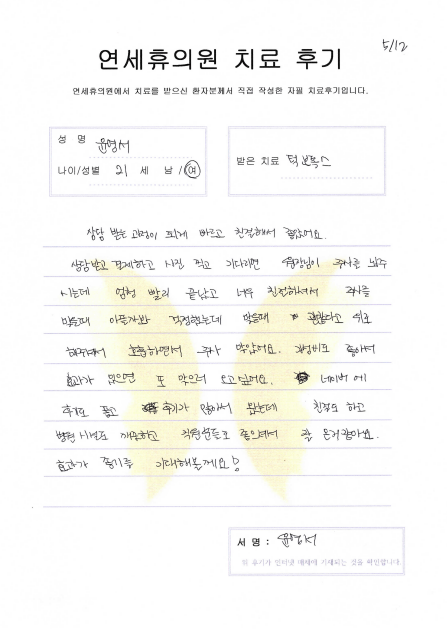 5/12
연세휴의원 치료 후기
연세휴의원에서 치료를 받으신 환자분께서 직접 작성한 자필 치료후기입니다.
성 명 윤영서
나이/성별 21 세 남 / 여
받은 치료 턱보톡스
상담 받는 과정이 되게 빠르고 친절해서 좋았어요.
상담받고 결제하고 사진 찍고 기다리면 원장님이 주사를 놔주
시는데 엄청 빨리 끝났고 너무 친절하셔서 주사를
맞을때 아플까봐 걱정했는데 맞을때 괜찮다고 위로
해주셔서 호흡하면서 주사 맞았어요. 가성비도 좋아서
효과가 있으면 또 맞으러 오고싶어요. 네이버에
후기도 많고 후기가 많아서 왔는데 친절도 하고
병원 시설도 깨끗하고 직원분들도 좋으셔서 잘 온거같아요.
효과가 좋기를 기대해볼게요!
서 명 : 윤영서
위 후기가 인터넷 매체에 기재되는 것을 확인합니다.